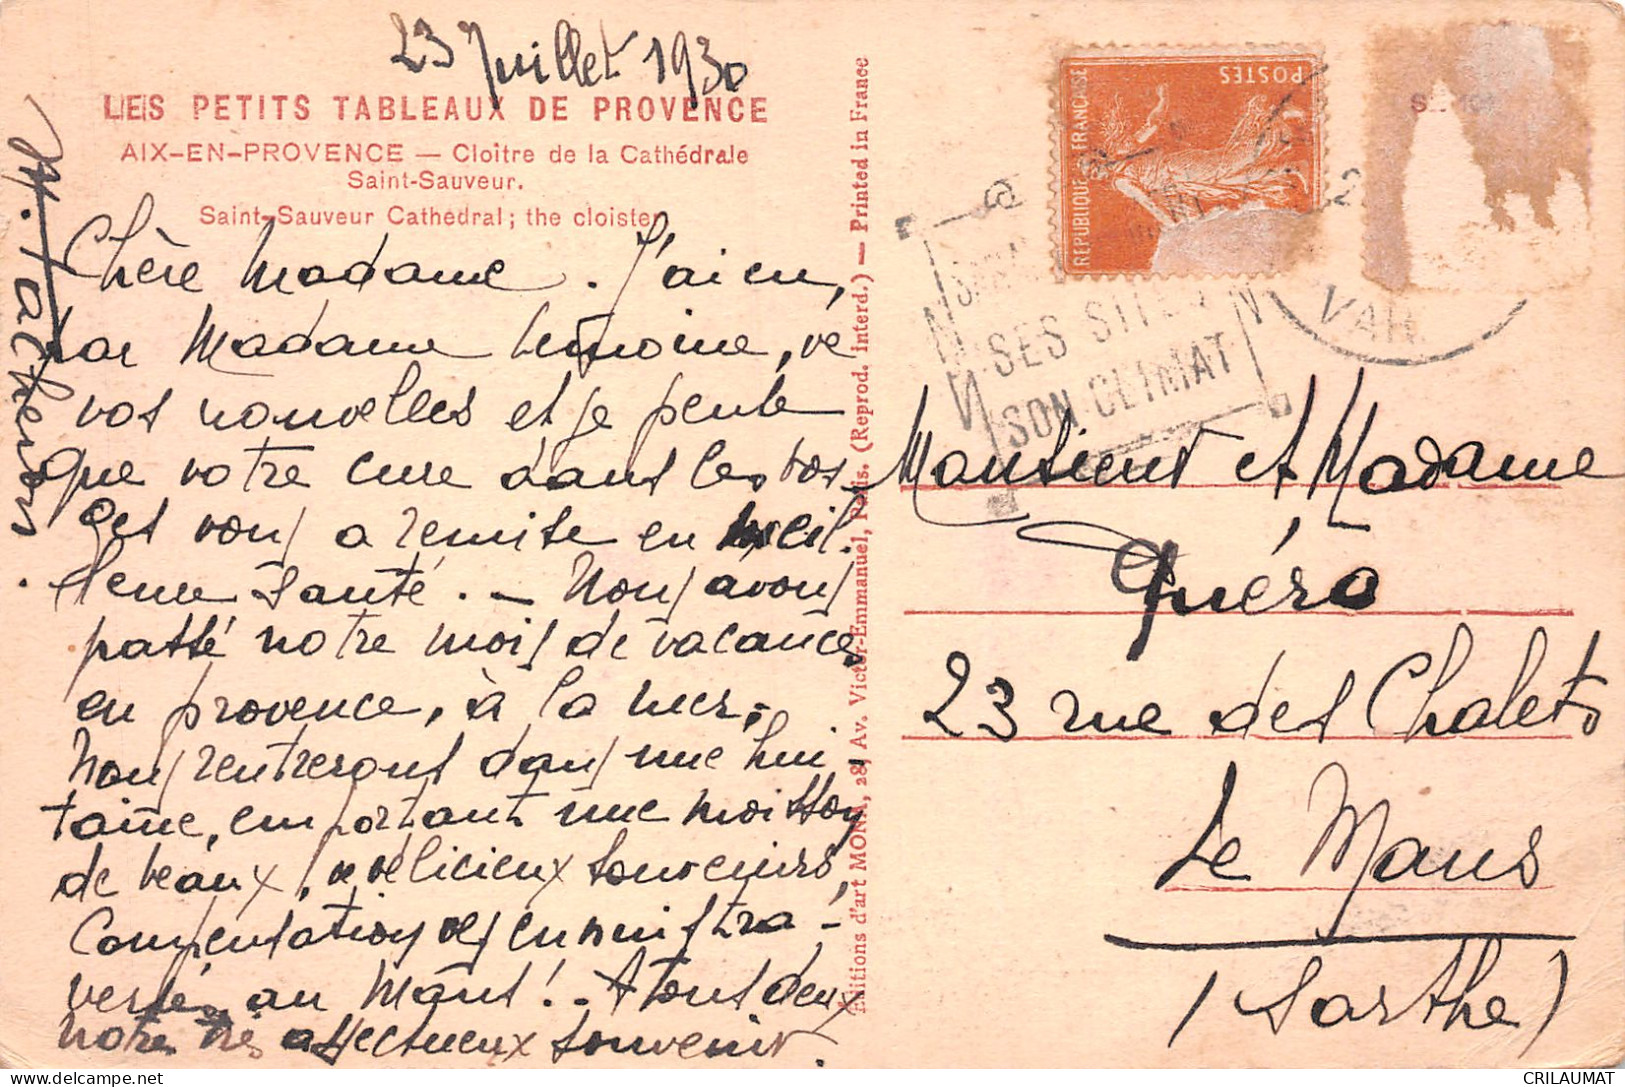 23 Juillet 1930
LES PETITS TABLEAUX DE PROVENCE
AIX-EN-PROVENCE — Cloître de la Cathédrale
Saint-Sauveur.
Saint-Sauveur Cathedral; the cloister
Chère Madame. J'ai eu,
par Madame Lemoine, de
vos nouvelles et je pense
que votre cure dans les Vos-
ges vous a remise en meil-
leure santé. — Nous avons
passé notre mois de vacances
en provence, à la mer.
Nous rentrerons dans une hui
taine, emportant une moisson
de beaux, délicieux souvenirs,
Compensation des ennuis tra-
versés au Mans! - A tous deux
notre très affectueux souvenir.
Éditions d'art MONA, 28, Av. Victor-Emmanuel, Paris. (Reprod. Interd.) — Printed in France
POSTES
REPUBLIQUE FRANÇAISE
SES SITES
SON CLIMAT
VAR
Monsieur et Madame
Quéro
23 rue des Chalets
Le Mans
(Sarthe)
CRILAUMAT